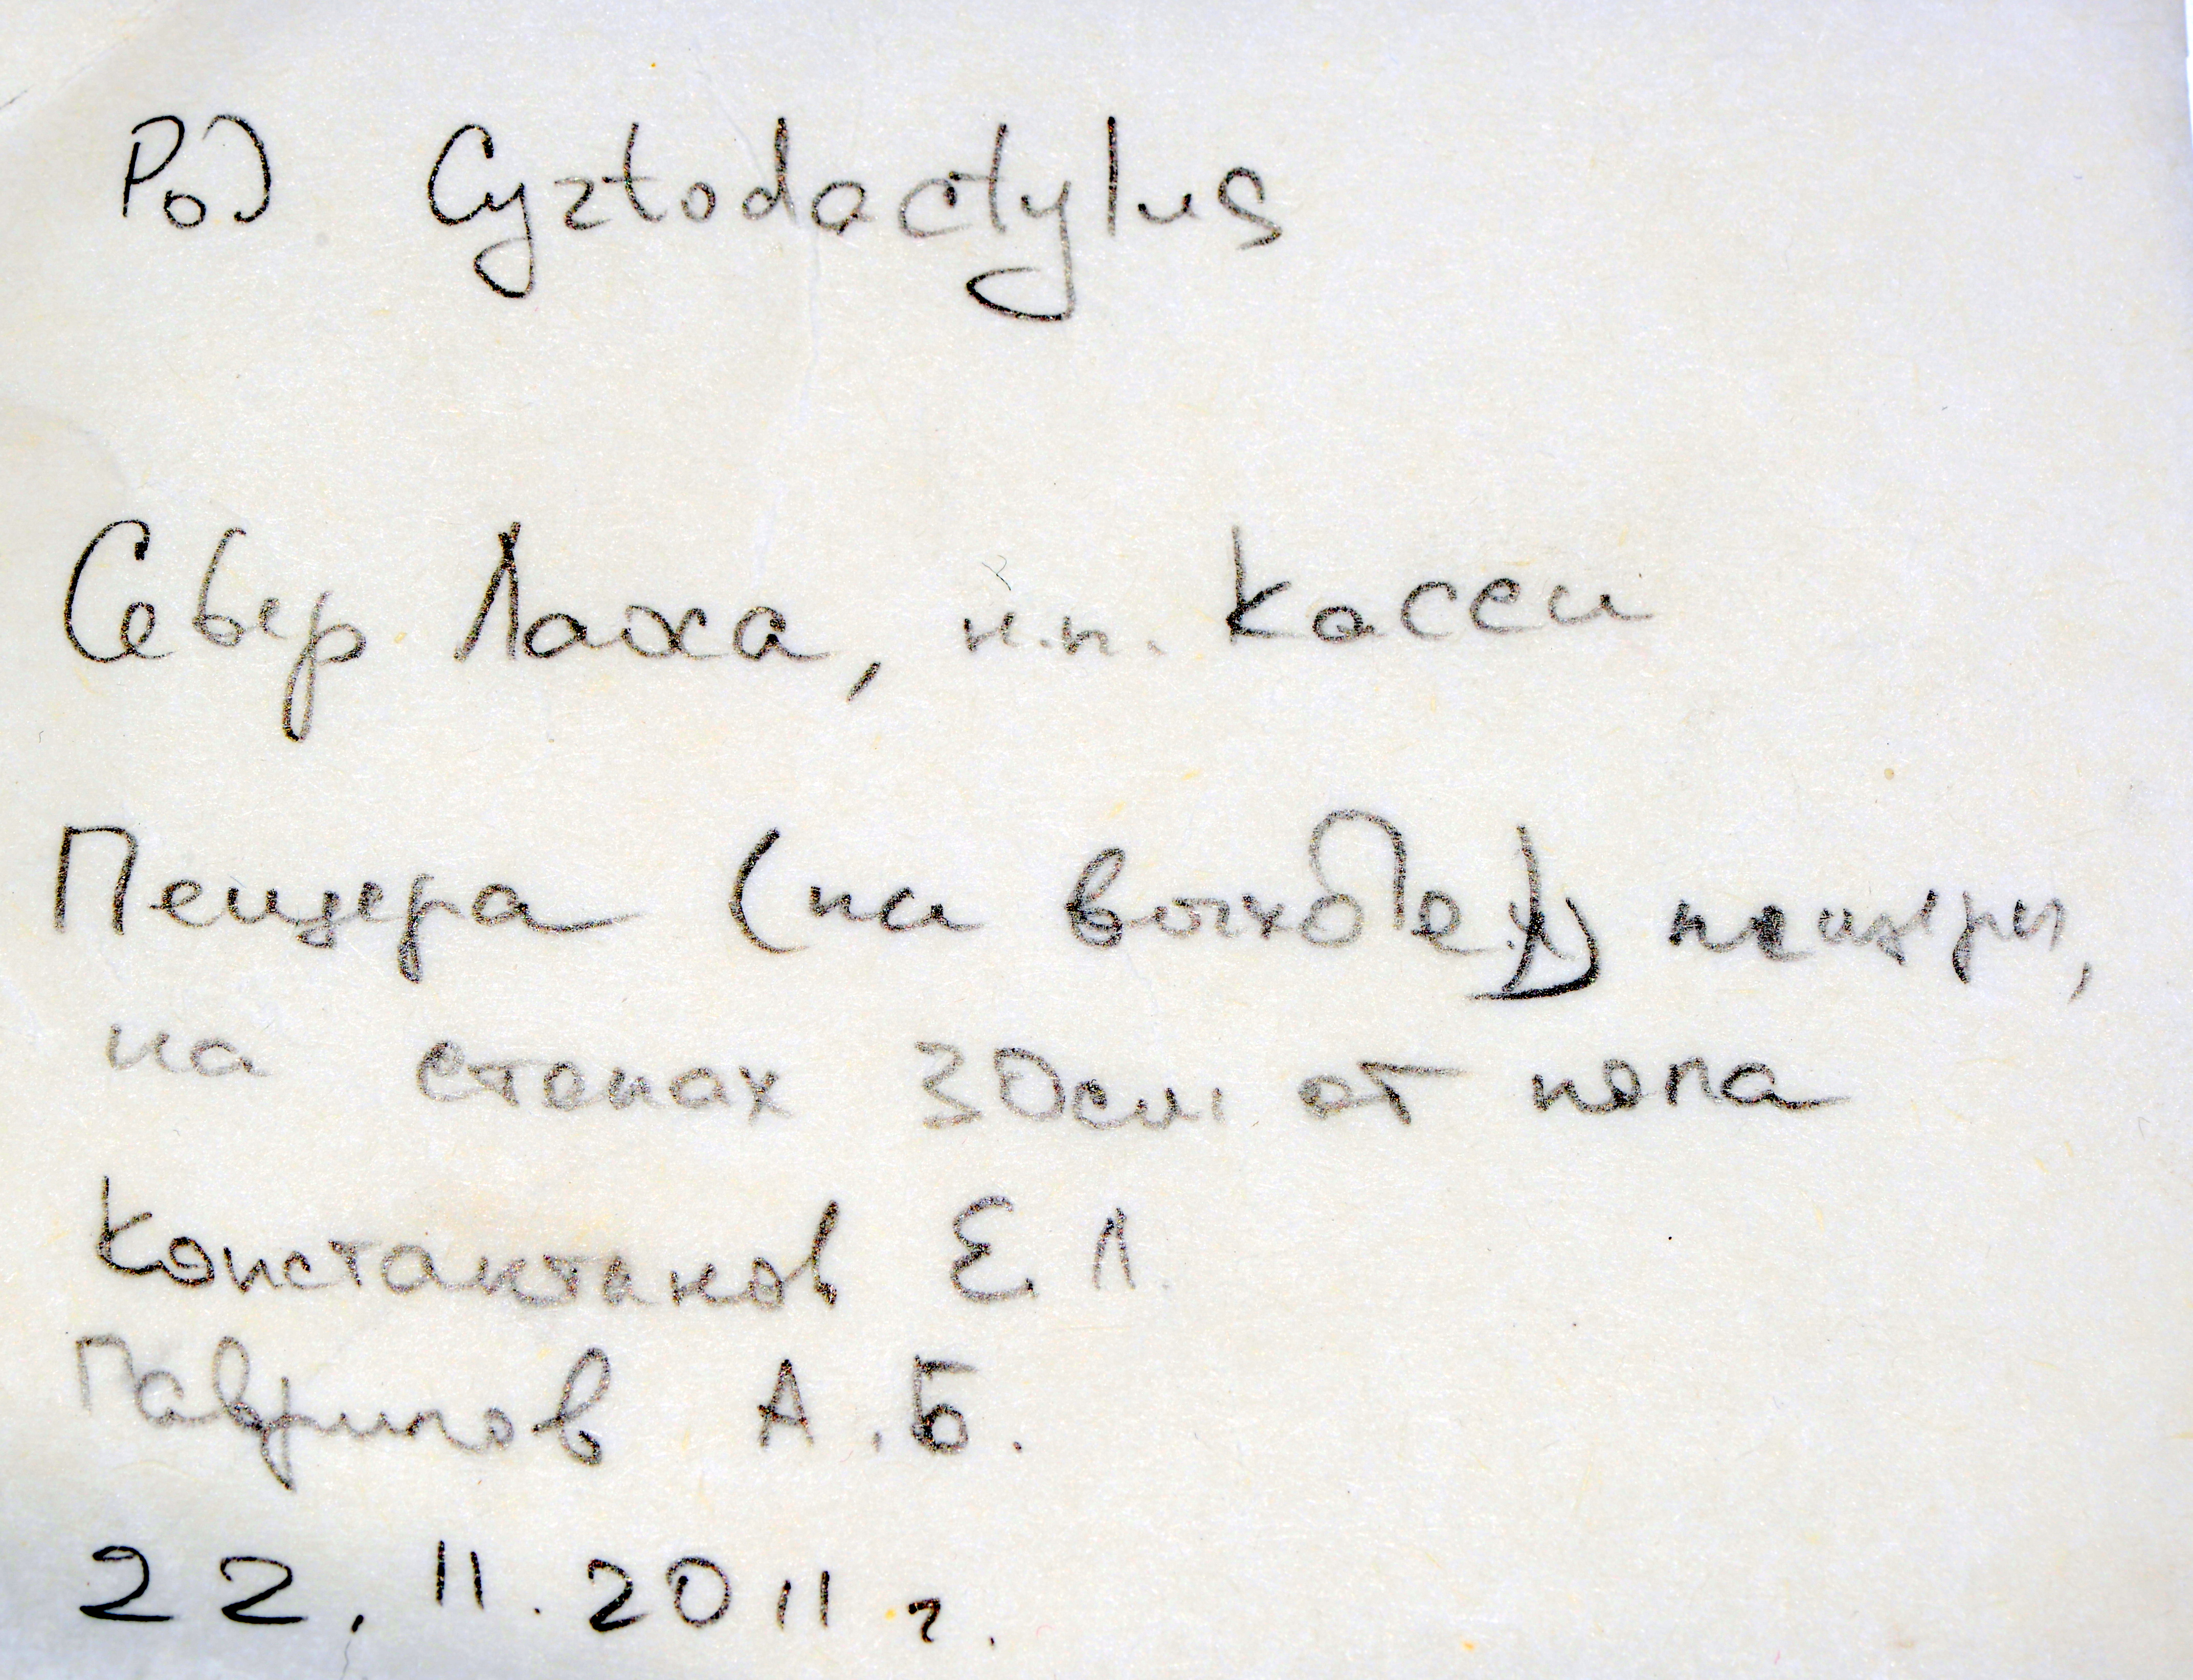 Род Cyrtodactylus
Север Лаоса, н.п. Касси
Пещера (на выходе) пещеры,
на стенах 30см от пола
Константинов Е.Л.
Гаврилов А.Б.
22.11.2011 г.